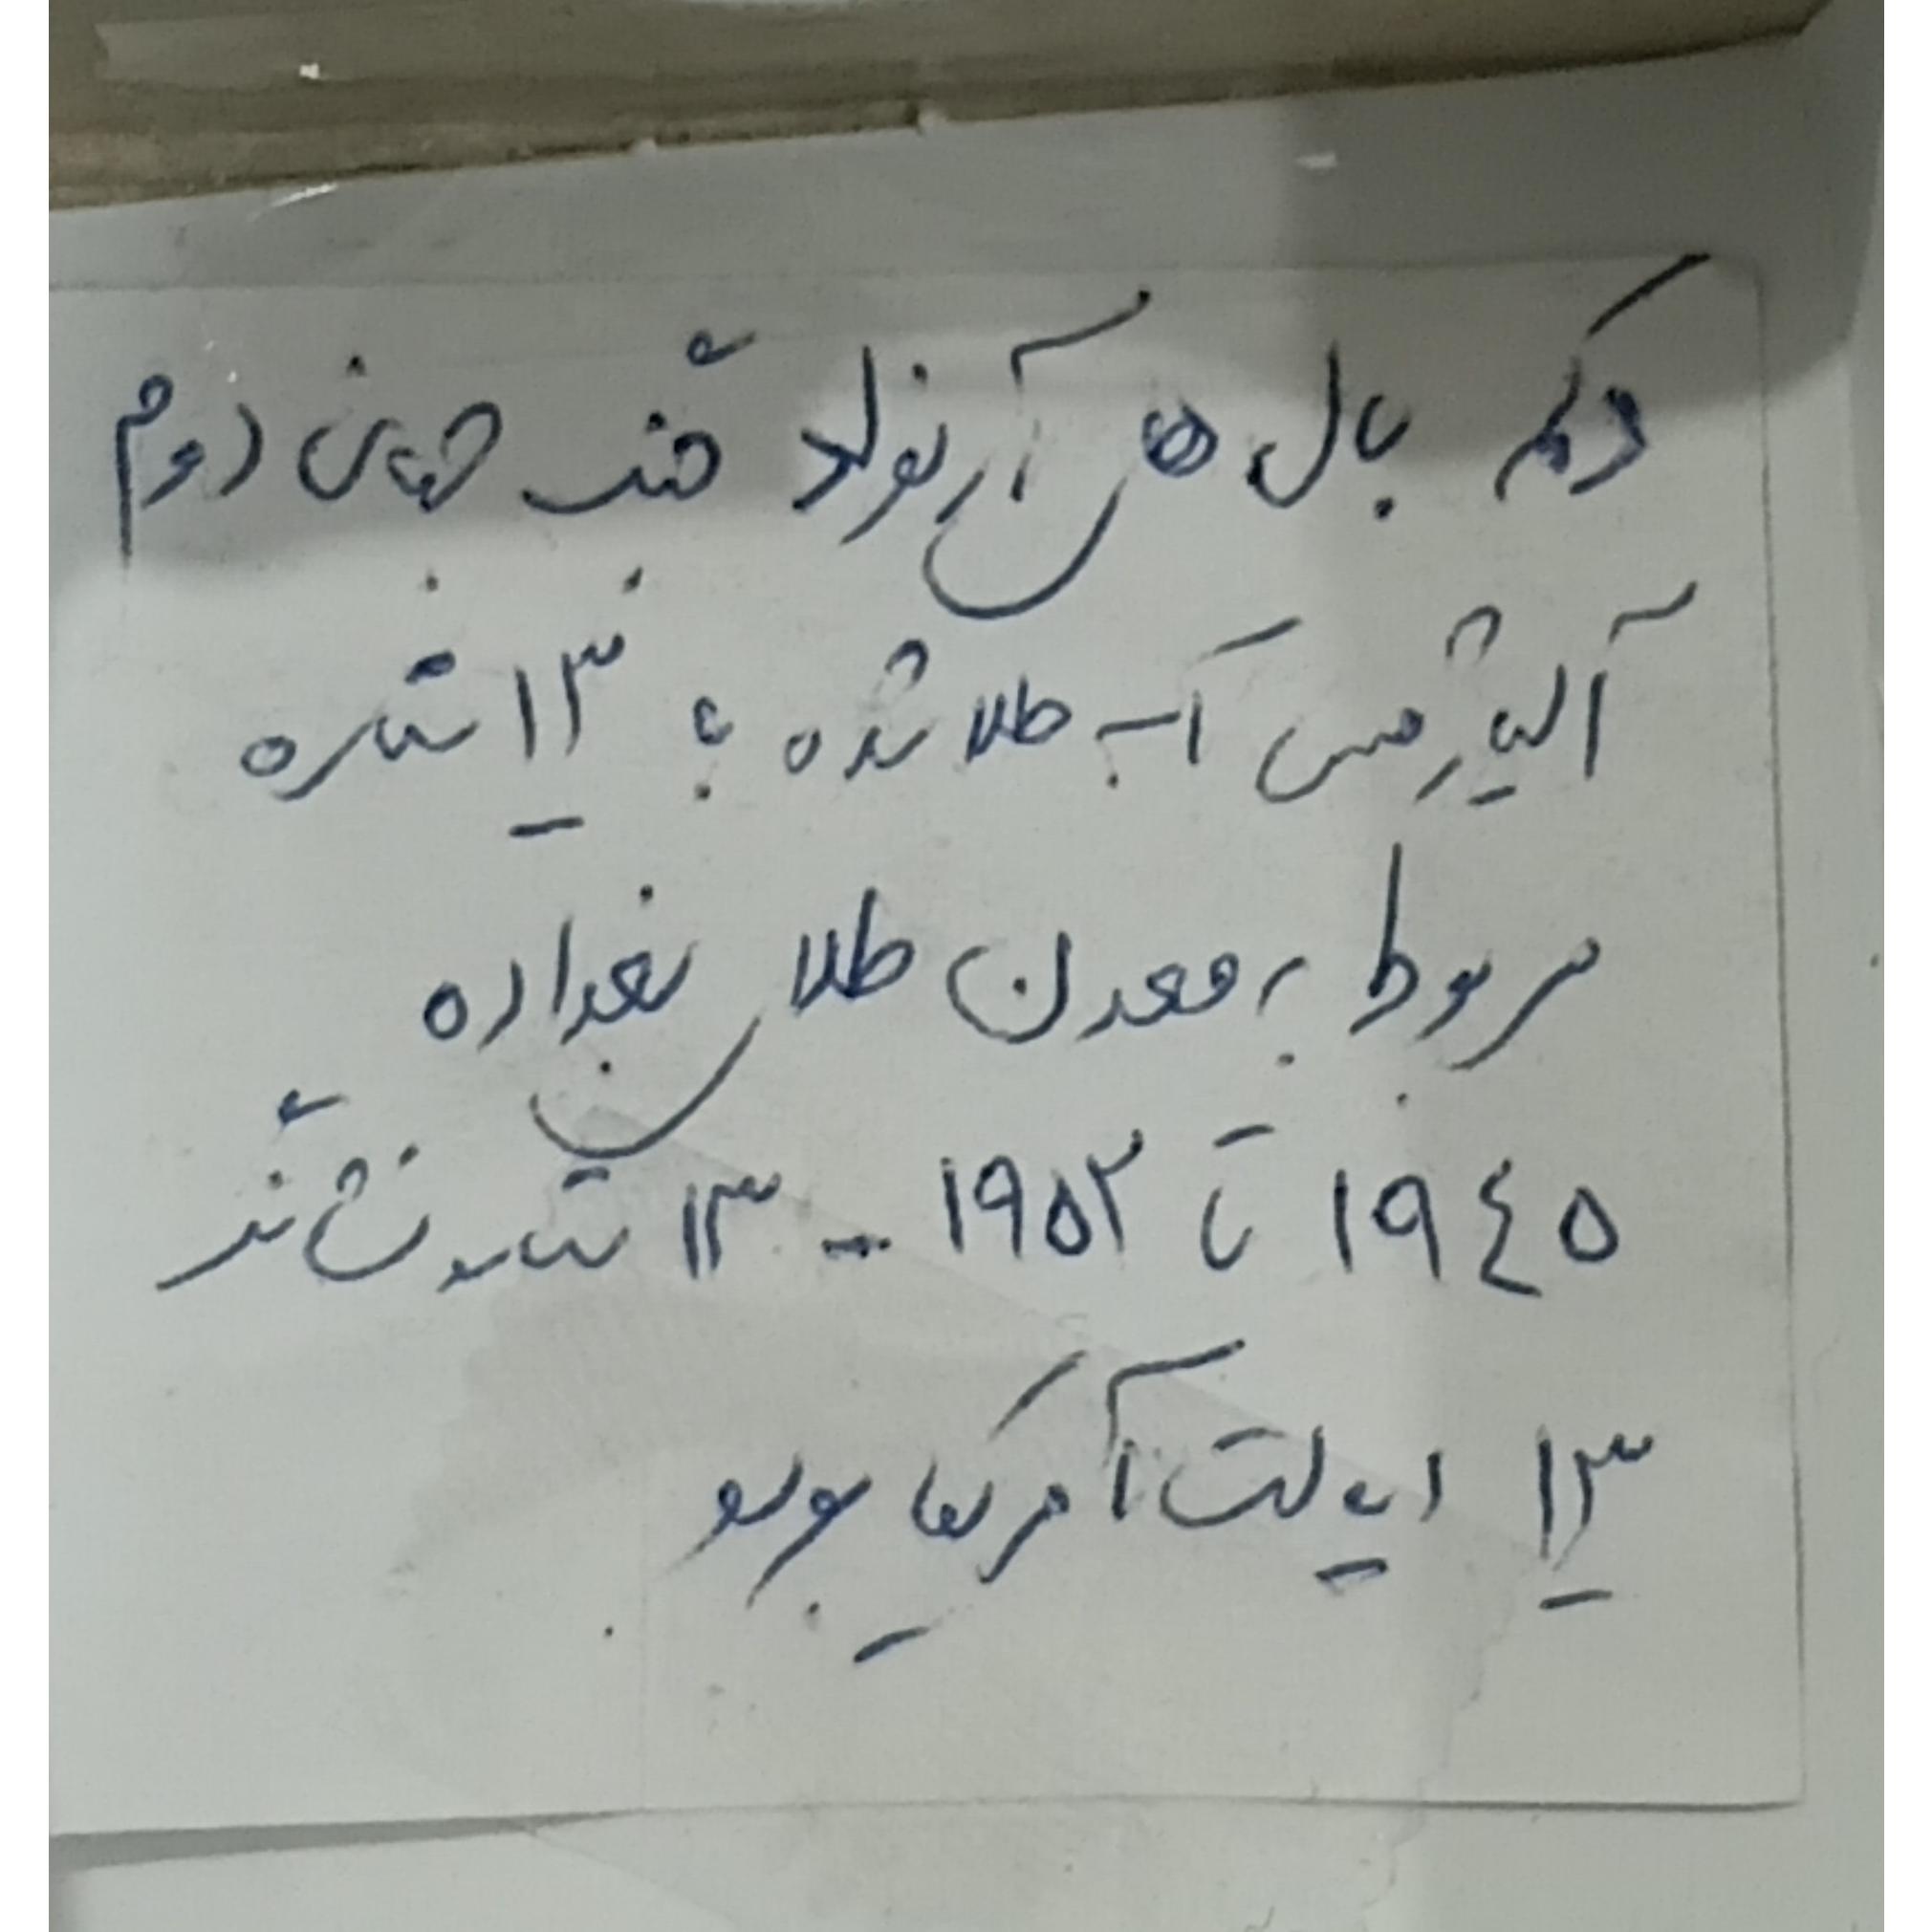 دکمه بال های آرنولد جنگ جهانی دوم
آلیاژ مس آب طلا شده با ۱۳ ستاره
مربوط به معدن طلای بغداده
۱۹٤۵ تا ۱۹۵۲ - ۱۳ ستاره نشانگر
۱۳ ایالت آمریکا بوده